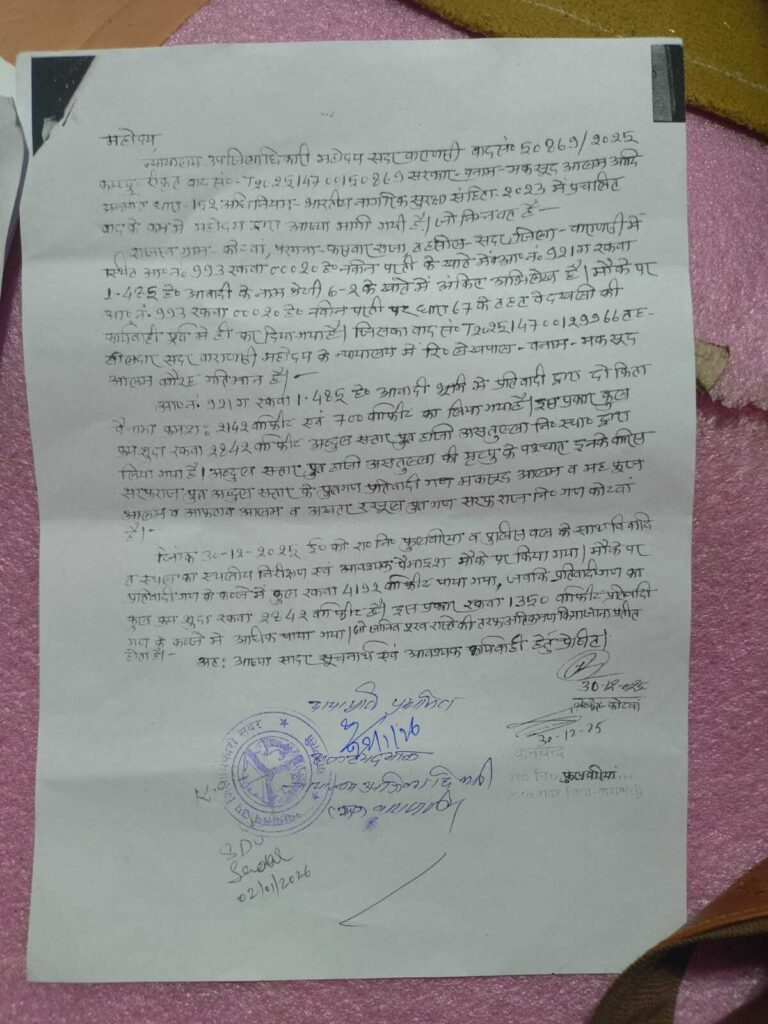 महोदय,
न्यायालय उपजिलाधिकारी महोदय सदर वाराणसी वाद सं० 50869/2025
कम्प्यू- रीकृत वाद सं०- T202514700150869 सरकार- बनाम- मकसूद आलम आदि
अन्तर्गत धारा- 152 अधिनियम- भारतीय नागरिक सुरक्षा संहिता- 2023 में प्रचलित
वाद के क्रम में महोदय द्वारा आख्या मांगी गयी है। जो निम्नवत है -
राजस्व ग्राम- कोटवां, परगना- कसवार राजा, तहसील- सदर जिला- वाराणसी में
स्थित आ०नं० 993 रकवा 0.0020 हे० नवीन परती के खाते में व आ०नं० 921ग रकवा
1.485 हे० आबादी के नाम श्रेणी 6-2 के खाते में अंकित अभिलेख है। मौके पर
आ०नं. 993 रकवा 0.0020 हे० नवीन परती पर धारा 67 के तहत बेदखली की
कार्यवाही पूर्व में ही कर दिया गया है। जिसका वाद सं० T202514700129966 तह-
सीलदार सदर वाराणसी महोदय के न्यायालय में रि० लेखपाल- बनाम- मकसूद
आलम वगैरह गतिमान है।-
आ०नं० 921ग रकवा 1.485 हे० आबादी भूमि में प्रतिवादी द्वारा दो किता
बैनामा क्रमशः 2142 वर्गफीट एवं 700 वर्गफीट का लिया गया है। इस प्रकार कुल
क्रय शुदा रकवा 2842 वर्गफीट अब्दुल सत्तार पुत्र हाजी असतुल्ला नि० स्था० द्वारा
लिया गया है। अब्दुल सत्तार पुत्र हाजी असतुल्ला की मृत्यु के पश्चात इनके वारिस
सरफराज पुत्र अब्दुल सत्तार के पुत्रगण प्रतिवादी गण मकसूद आलम व
आलम व आफताब आलम व पुत्रगण सरफराज नि० गण कोटवां
है।-
दिनांक 30-12-2025 ई० को रा० नि० फुलवरिया व पुलिस बल के साथ विवादि
त स्थल का स्थलीय निरीक्षण एवं आवश्यक पैमाइश मौके पर किया गया। मौके पर
प्रतिवादी गण के कब्जे में कुल रकवा 4192 वर्गफीट पाया गया, जबकि प्रतिवादीगण का
कुल क्रय शुदा रकवा 2842 वर्गफीट है। इस प्रकार रकवा 1350 वर्गफीट प्रतिवादी
गण के कब्जे में अधिक पाया गया। जो रास्ते की तरफ अतिक्रमण किया जाना प्रतीत
होता है।-
अतः आख्या सादर सूचनार्थ एवं आवश्यक कार्यवाही हेतु प्रेषित।
30-12-025
लेखपाल- कोटवां
30-12-25
रा० नि० फुलवरिया
छाया प्रति प्रमाणित
सदर वाराणसी
SDO
Sadar
02/01/2026